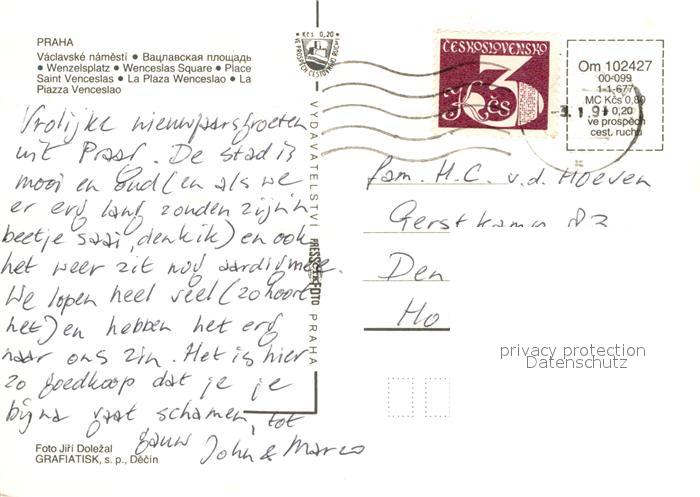 PRAHA
Václavské náměstí • Вацлавская площадь
• Wenzelsplatz • Wenceslas Square • Place
Saint Venceslas • La Plaza Wenceslao • La
Piazza Venceslao
Vrolijke nieuwjaarsgroeten
uit Praag. De stad is
mooi en oud (en als we
er erg lang zouden zijn 'n
beetje saai, denk ik) en ook
het weer zit nog aardig mee.
We lopen heel veel (zo hoort
het) en hebben het erg
naar ons zin. Het is hier
zo goedkoop dat je je
bijna gaat schamen, tot
gauw John & Marco
Foto Jiří Doležal
GRAFIATISK, s. p., Děčín
• Kčs 0,20 •
VE PROSPĚCH CESTOVNÍHO RUCHU
VYDAVATELSTVÍ PRESSFOTO PRAHA
ČESKOSLOVENSKO
3 Kčs
Om 102427
00-099
1-1-677
MC Kčs 0,80
0,20
ve prospěch
cest. ruchu
3.1.91
fam. H.C. v.d. Hoeven
Gerstkamp 83
Den
Ho
privacy protection
Datenschutz